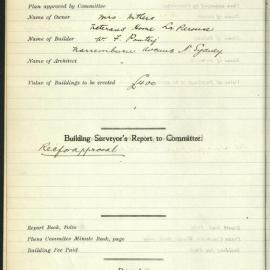 Plan approved by Committee
Name of Owner Mrs Withers
Veterans Home La Perouse
Name of Builder W. F. Pentry
Narremburn Avenue N Sydney
Name of Architect
Value of Buildings to be erected £400
Building Surveyor's Report to Committee:
Rec for approval
Report Book, Folio
Plans Committee Minute Book, page
Building Fee Paid